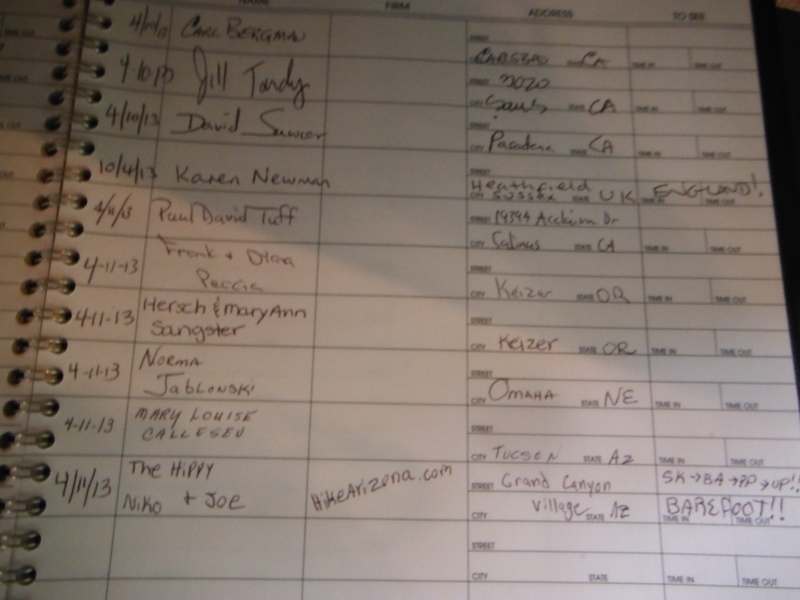 NAME FIRM ADDRESS TO SEE
4/10/13 CARL BERGMAN STREET
CARLSBAD STATE CA TIME IN TIME OUT
4/10/13 Jill Tandy STREET 3020
CITY STATE CA TIME IN TIME OUT
4/10/13 David STREET
CITY Pasadena STATE CA TIME IN TIME OUT
10/4/13 Karen Newman STREET Heathfield
CITY SUSSEX STATE UK ENGLAND! TIME IN TIME OUT
4/11/13 Paul David Tuff STREET 19394 Dr
CITY Salinas STATE CA TIME IN TIME OUT
4-11-13 Frank + Diana STREET
Peccia CITY Keizer STATE OR TIME IN TIME OUT
4-11-13 Hersch & MaryAnn STREET
Sangster CITY Keizer STATE OR TIME IN TIME OUT
4-11-13 NORMA STREET
JABLONSKI CITY OMAHA STATE NE TIME IN TIME OUT
4-11-13 MARY LOUISE STREET
CALLESEN CITY TUCSON STATE AZ TIME IN TIME OUT
4/11/13 The HiPPY HikeArizona.com STREET Grand Canyon SK→BA→PP→UP!!
Niko + Joe CITY Village STATE AZ BAREFOOT!! TIME IN TIME OUT
STREET
CITY STATE TIME IN TIME OUT